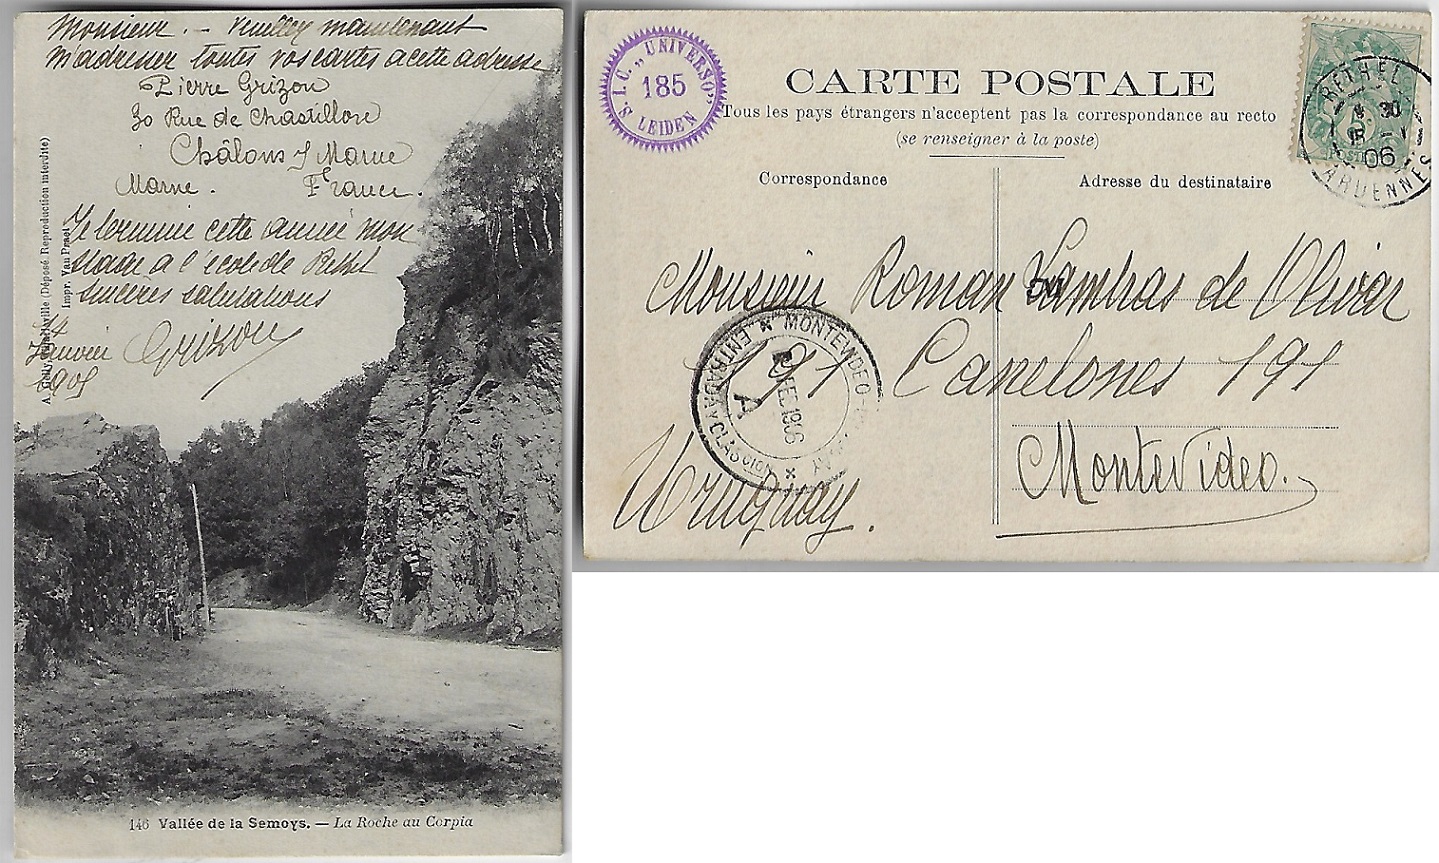 Monsieur. - Veuillez maintenant
m'adresser toutes vos cartes a cette adresse
Pierre Grizou
30 Rue de Chastillon
Châlons s/ Marne
Marne. France.
Je termine cette année mon
stage a l'école de Rethel
sincères salutations
Janvier Grizou
190
(Déposé. Reproduction interdite)
Impr. Van Praet
146 Vallée de la Semoys. — La Roche au Corpia
S. I. C. „UNIVERSO”
185
LEIDEN
CARTE POSTALE
Tous les pays étrangers n'acceptent pas la correspondance au recto
(se renseigner à la poste)
Correspondance
Adresse du destinataire
RETHEL
4 30
06
ARDENNES
Monsieur Roman Lambas de Olivar
Canelones 191
Montevideo.
Uruguay.
MONTEVIDEO
1906
A